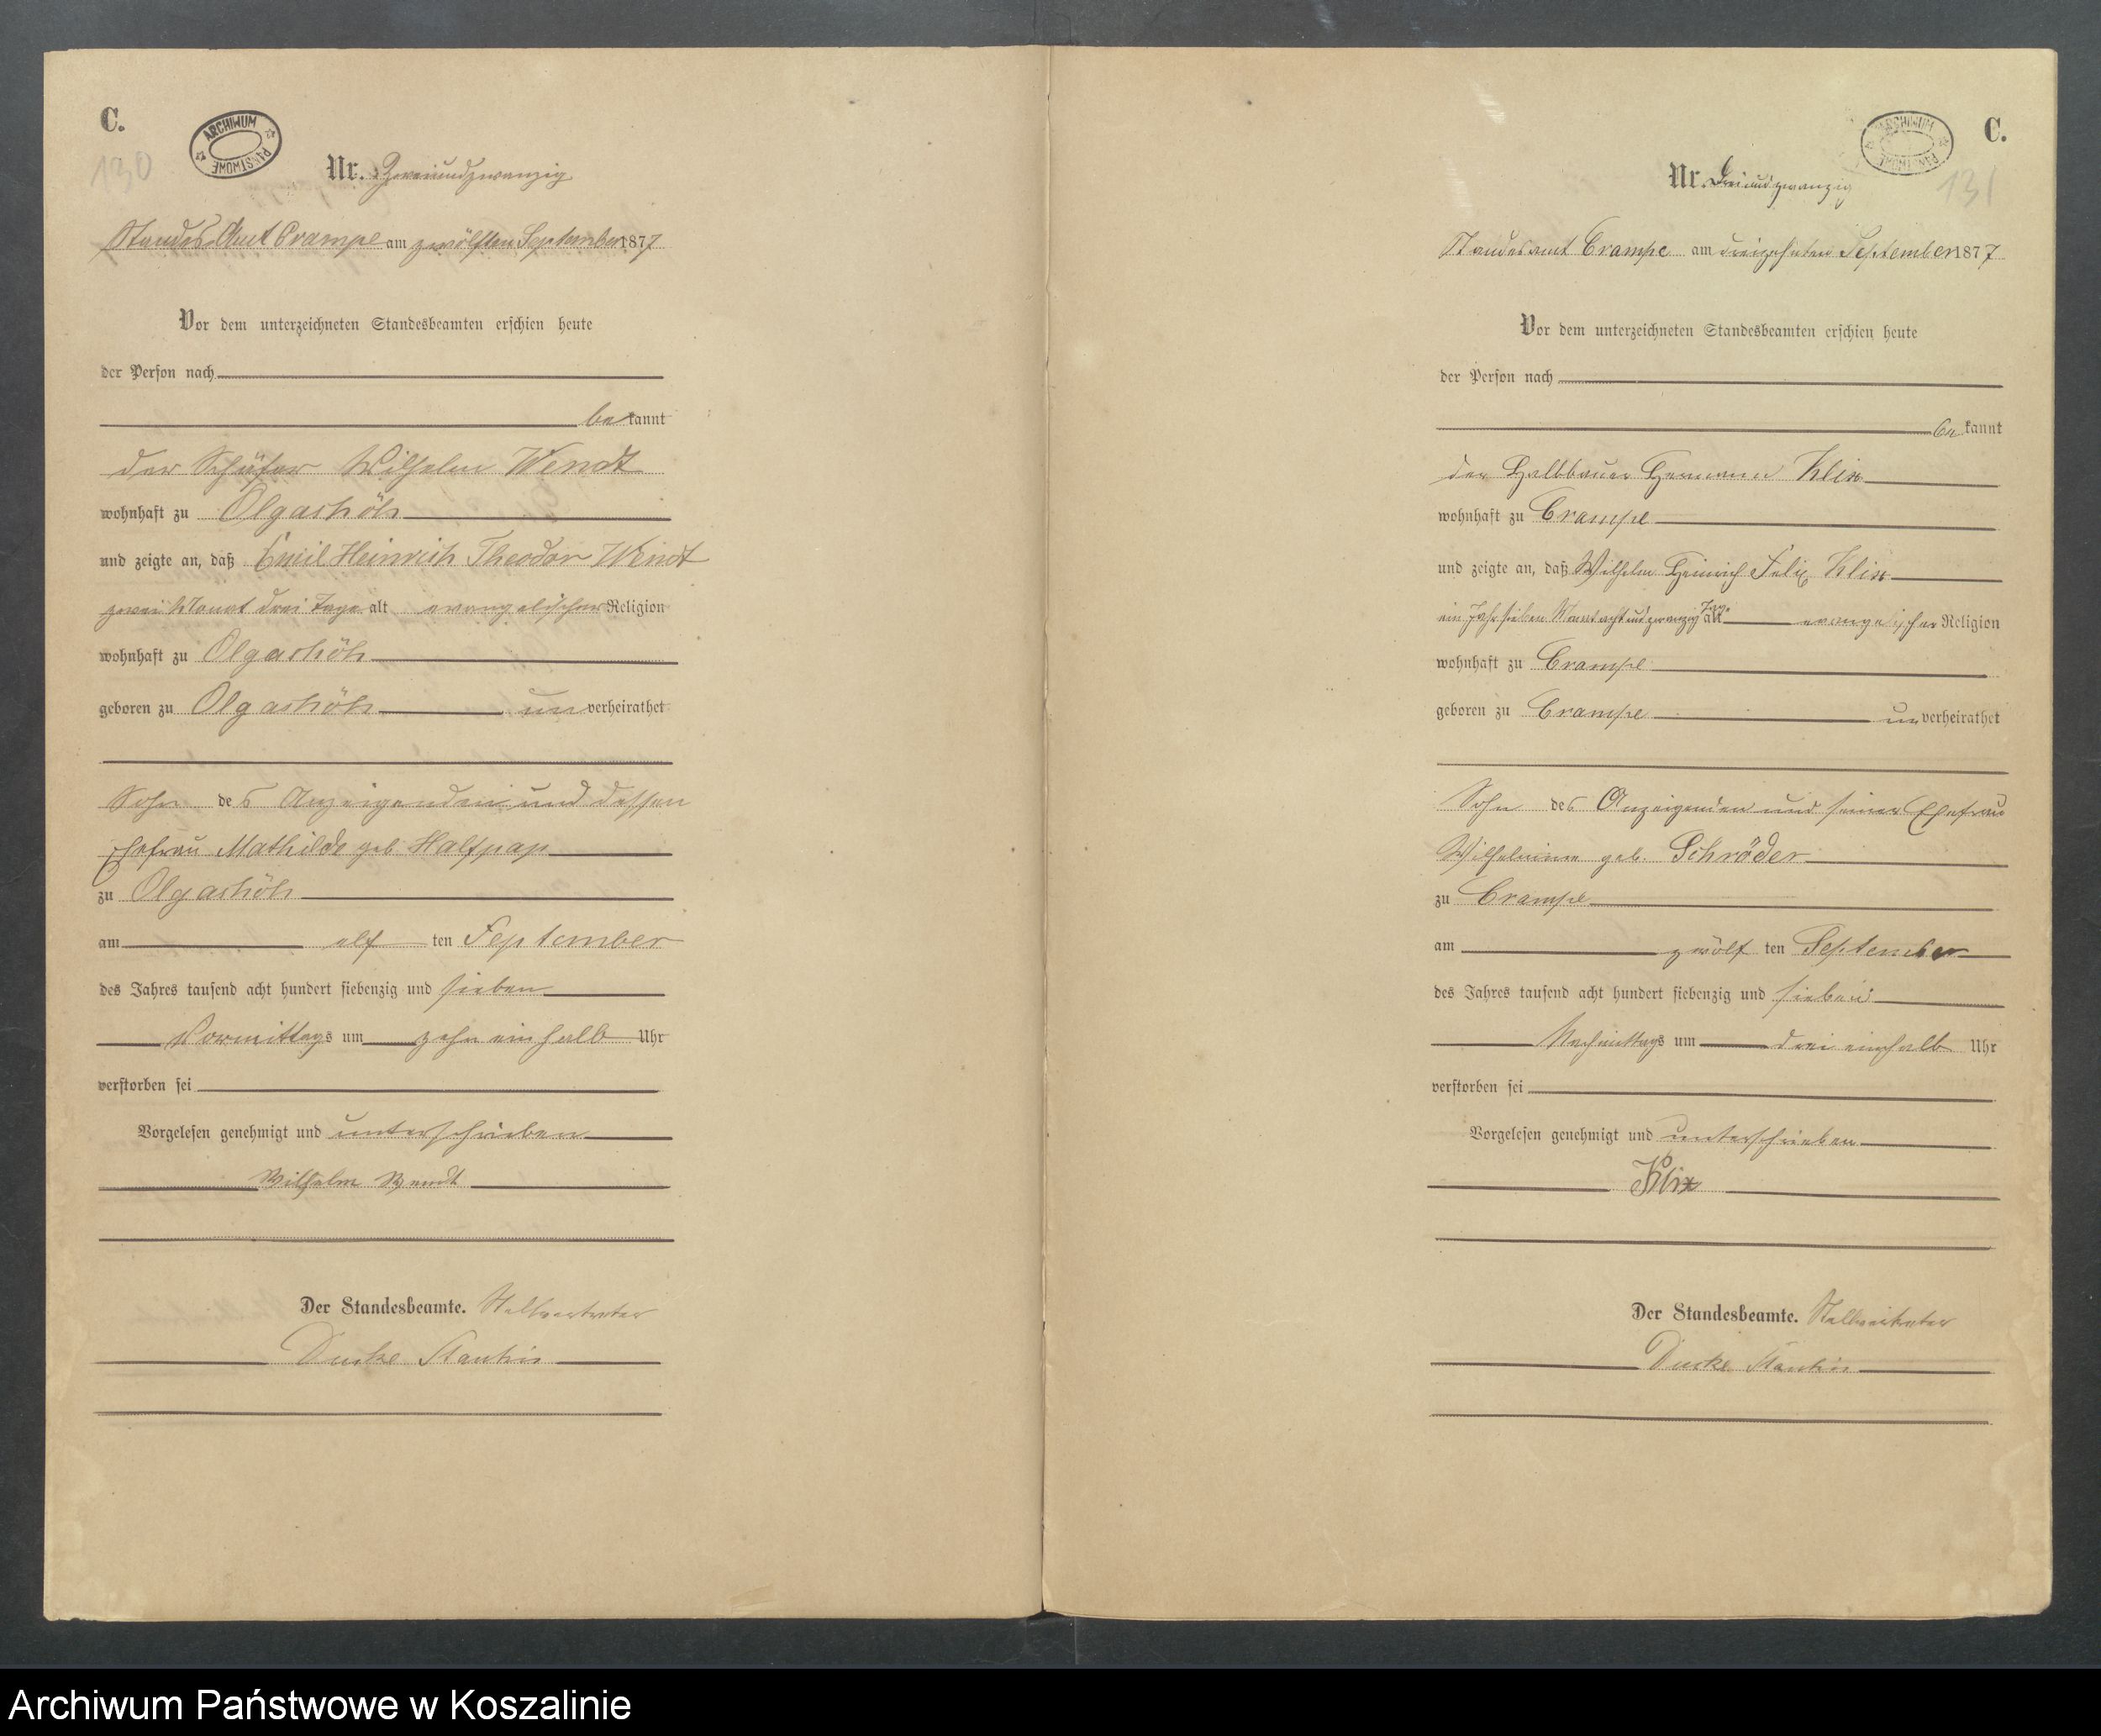 C.
130
ARCHIWUM PAŃSTWOWE
Nr. Zweiundzwanzig
Standes-Amt Crampe am zwölften September 1877
Vor dem unterzeichneten Standesbeamten erschien heute
der Person nach
bekannt
der Schäfer Wilhelm Wendt
wohnhaft zu Olgashöh
und zeigte an, daß Emil Heinrich Theodor Wendt
zwei Monat drei Tage alt evangelischer Religion
wohnhaft zu Olgashöh
geboren zu Olgashöh unverheirathet
Sohn des Anzeigenden und dessen
Ehefrau Mathilde geb. Halfpap
zu Olgashöh
am elf ten September
des Jahres tausend acht hundert siebenzig und sieben
Vormittags um zehn einhalb Uhr
verstorben sei
Vorgelesen genehmigt und unterschrieben
Wilhelm Wendt
Der Standesbeamte. Stellvertreter
C.
131
ARCHIWUM PAŃSTWOWE
Nr. Dreiundzwanzig
Standesamt Crampe am dreizehnten September 1877
Vor dem unterzeichneten Standesbeamten erschien heute
der Person nach
bekannt
der Halbbauer Hermann Klix
wohnhaft zu Crampe
und zeigte an, daß Wilhelm Heinrich Felix Klix
ein Jahr sieben Monat achtundzwanzig Tage alt evangelischer Religion
wohnhaft zu Crampe
geboren zu Crampe unverheirathet
Sohn des Anzeigenden und seiner Ehefrau
Wilhelmine geb. Schröder
zu Crampe
am zwölf ten September
des Jahres tausend acht hundert siebenzig und sieben
Nachmittags um drei einhalb Uhr
verstorben sei
Vorgelesen genehmigt und unterschrieben
Klix
Der Standesbeamte. Stellvertreter
Archiwum Państwowe w Koszalinie